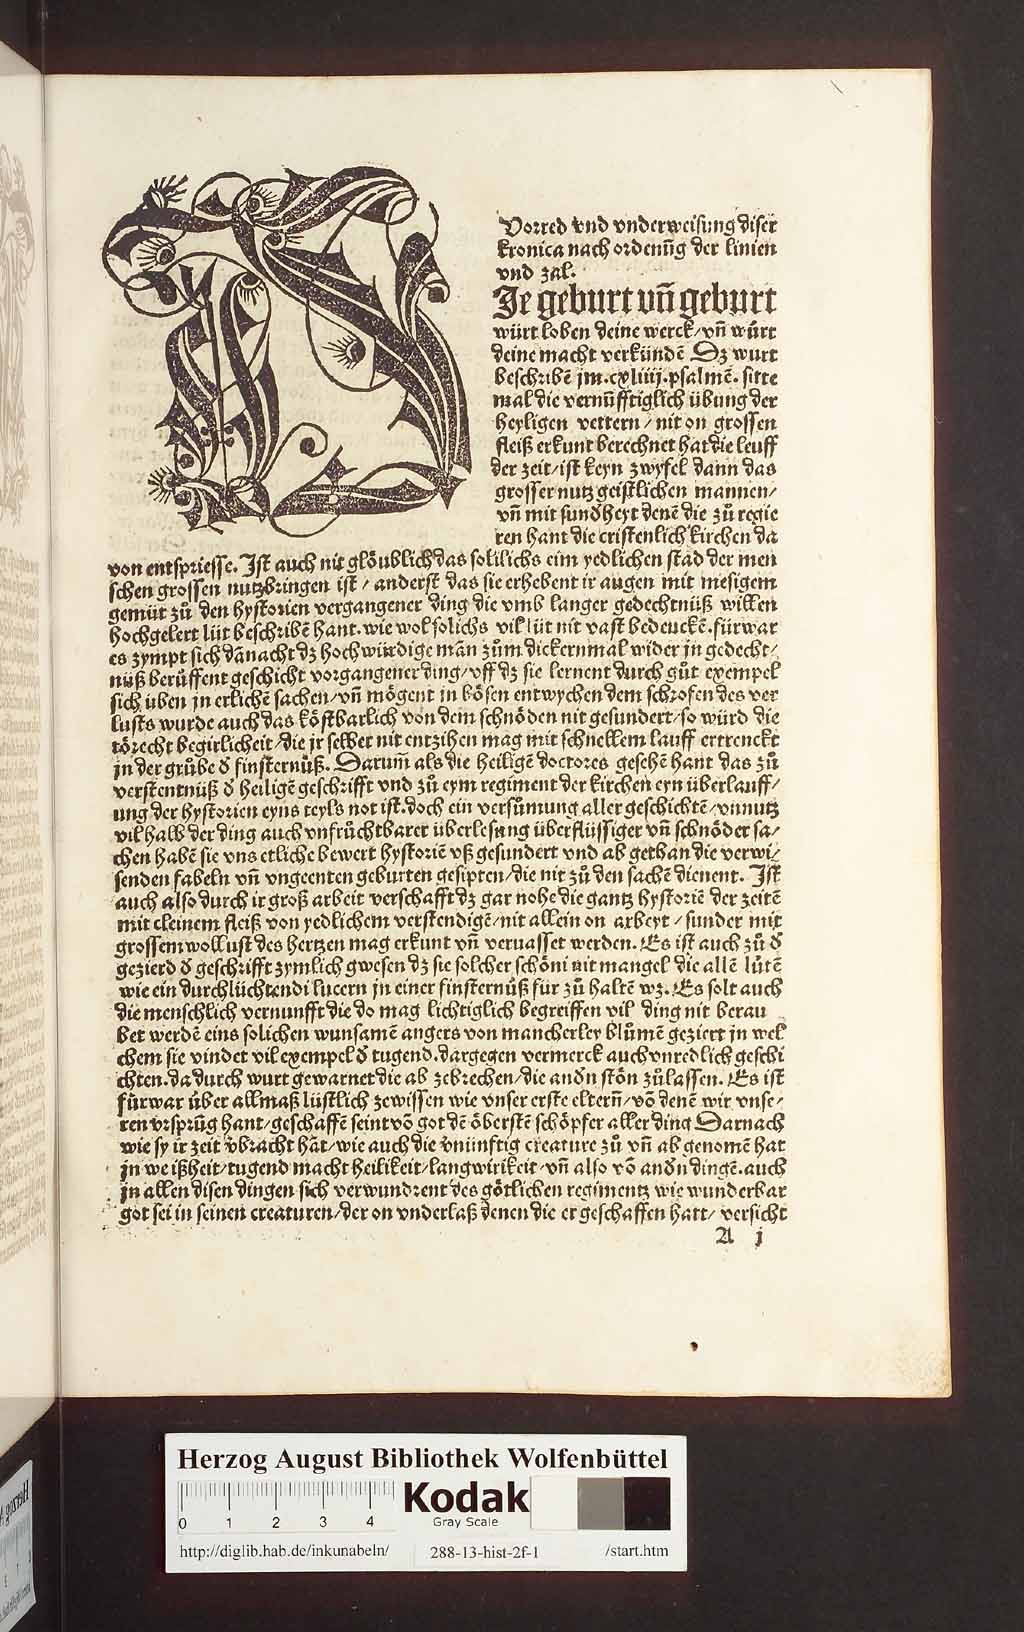 Vorred vnd vnderweisung diser
kronica nach ordenūg der linien
vnd zal.
DIe geburt vñ geburt
würt loben deine werck/vñ würt
deine macht verkündē Dz wurt
beschribē jm.cxliiij.psalmē. sitte
mal die vernūfftiglich übung der
heyligen vettern/nit on grossen
fleiß erkunt berechnet hat die leuff
der zeit/ist keyn zwyfel dann das
grosser nutz geistlichen mannen/
vñ mit sundheyt denē die zů regie
ren hant die cristenlich kirchen da
von entspriesse. Ist auch nit glöublich das solilichs eim yedlichen stad der men
schen grossen nutzbringen ist/anderst das sie erhebent ir augen mit mesigem
gemüt zů den hystorien vergangener ding die vmb langer gedechtnüß willen
hochgelert lüt beschribē hant. wie wol solichs vil lüt nit vast bedeuckē.fürwar
es zympt sich dānacht dz hochwürdige man zům dickernmal wider in gedecht/
nüß berůffent geschicht vorgangener ding/vff dz sie lernent durch gůt exempel
sich üben jn erlichē sachen/vñ mögent jn bösen entwychen dem schrofen des ver
lusts wurde auch das köstbarlich von dem schnöden nit gesundert/so würd die
törecht begirlicheit/die jr selber nit entzihen mag mit schnellem lauff ertrenckt
jn der grůbe d̄ finsternüß. Darum als die heiligē doctores gesehē hant das zů
verstentnüß d̄ heiligē geschrifft vnd zů eym regiment der kirchen eyn überlauff/
ung der hystorien eyns teyls not ist.doch ein versůmung aller geschichtē/vnnutz
vil halb der ding auch vnfrůchtbarer überlesung überflüssiger vñ schnöder sa/
chen habē sie vns etliche bewert hystoriē vß gesundert vnd ab gethan die verwi/
senden fabeln vñ vngeenten geburten gesipten/die nit zů den sachē dienent. Ist
auch also durch ir groß arbeit verschafft dz gar nohe die gantz hystoriē der zeitē
mit cleinem fleiß von yedlichem verstendigē/nit allein on arbeyt/sunder mit
grossem wollust des hertzen mag erkunt vñ veruasset werden. Es ist auch zů d̄
gezierd d̄ geschrifft zymlich gwesen dz sie solcher schöni nit mangel die allē lütē
wie ein durchlüchtendi lucern jn einer finsternüß für zů haltē wz. Es solt auch
die menschlich vernunfft die do mag lichtiglich begreiffen vil ding nit berau
bet werdē eins solichen wunsamē angers von mancherley blůmē geziert jn wel
chem sie vindet vil exempel d̄ tugend.dargegen vermerck auch vnredlich geschi
chten.da durch wurt gewarnet die ab zebrechen/die andn stön zůlassen. Es ist
fürwar über allmaß lüstlich zewissen wie vnser erste eltern̄/vō denē wir vnse/
ren vrsprūg hant/geschaffē seint vō got dē öberstē schöpfer aller ding Darnach
wie sy ir zeit v̄bracht hāt/wie auch die v̄nünftig creature zů vñ ab genomē hat
jn weißheit/tugend macht heilikeit/langwirikeit/vñ also vō andn dingē.auch
jn allen disen dingen sich verwundrent des götlichen regimentz wie wunderbar
got sei in seinen creaturen/der on vnderlaß denen die er geschaffen hatt/versicht
A j
Herzog August Bibliothek Wolfenbüttel
0 1 2 3 4
Kodak
Gray Scale
http://diglib.hab.de/inkunabeln/ 288-13-hist-2f-1 /start.htm